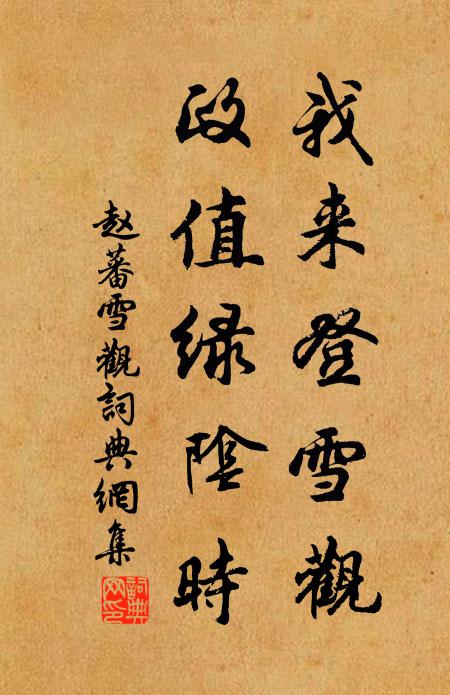 我来登雪觀
政值緑陰時
赵蕃雪觀詞典網集
詞典網印